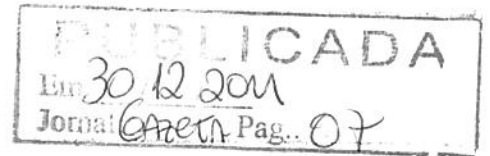 PUBLICADA
Em 30 12 2011
Jornal GAZETA Pag.. 07